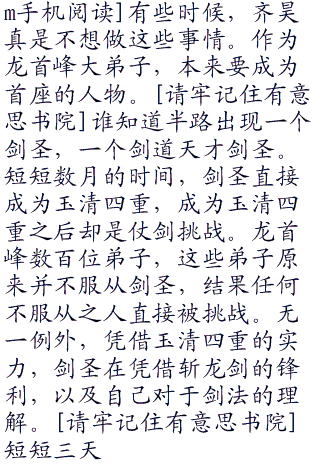 m手机阅读]有些时候，齐昊
真是不想做这些事情。作为
龙首峰大弟子，本来要成为
首座的人物。[请牢记住有意
思书院]谁知道半路出现一个
剑圣，一个剑道天才剑圣。
短短数月的时间，剑圣直接
成为玉清四重，成为玉清四
重之后却是仗剑挑战。龙首
峰数百位弟子，这些弟子原
来并不服从剑圣，结果任何
不服从之人直接被挑战。无
一例外，凭借玉清四重的实
力，剑圣在凭借斩龙剑的锋
利，以及自己对于剑法的理
解。[请牢记住有意思书院]
短短三天